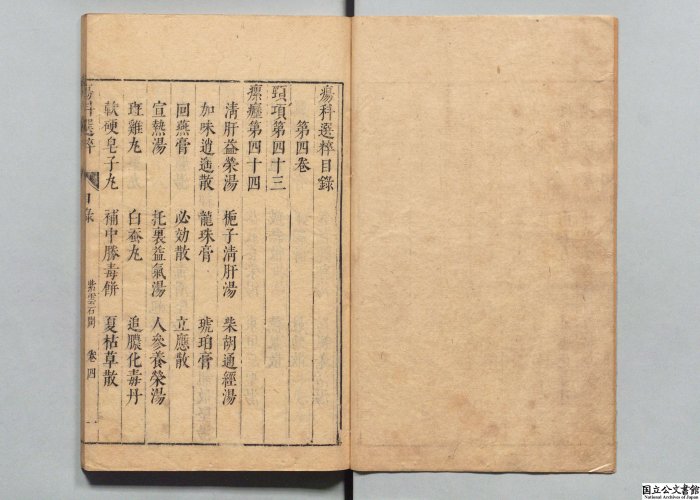 瘍科選粹目錄
第四卷
頸項第四十三
瘰癧第四十四
清肝益榮湯 梔子清肝湯 柴胡通經湯
加味逍遙散 龍珠膏 琥珀膏
回燕膏 必効散 立應散
宣熱湯 托裏益氣湯 人參養榮湯
斑雞丸 白蚕丸 追膿化毒丹
軟硬皂子丸 補中勝毒餅 夏枯草散
瘍科選粹 目錄 紫雲石閣 卷四 一
国立公文書館
National Archives of Japan